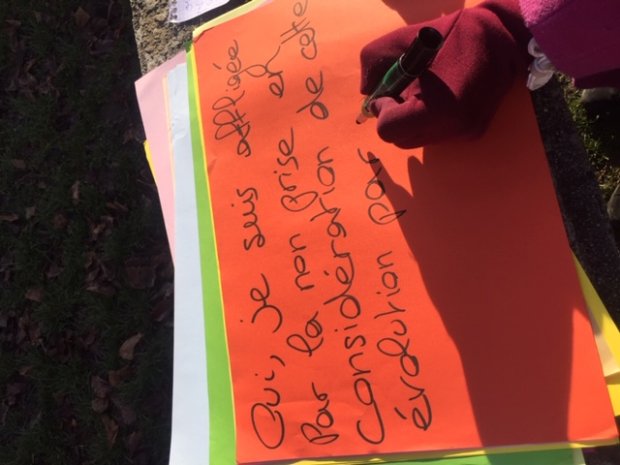 Oui, je suis affligée
Par la non prise en
considération de cette
évolution par